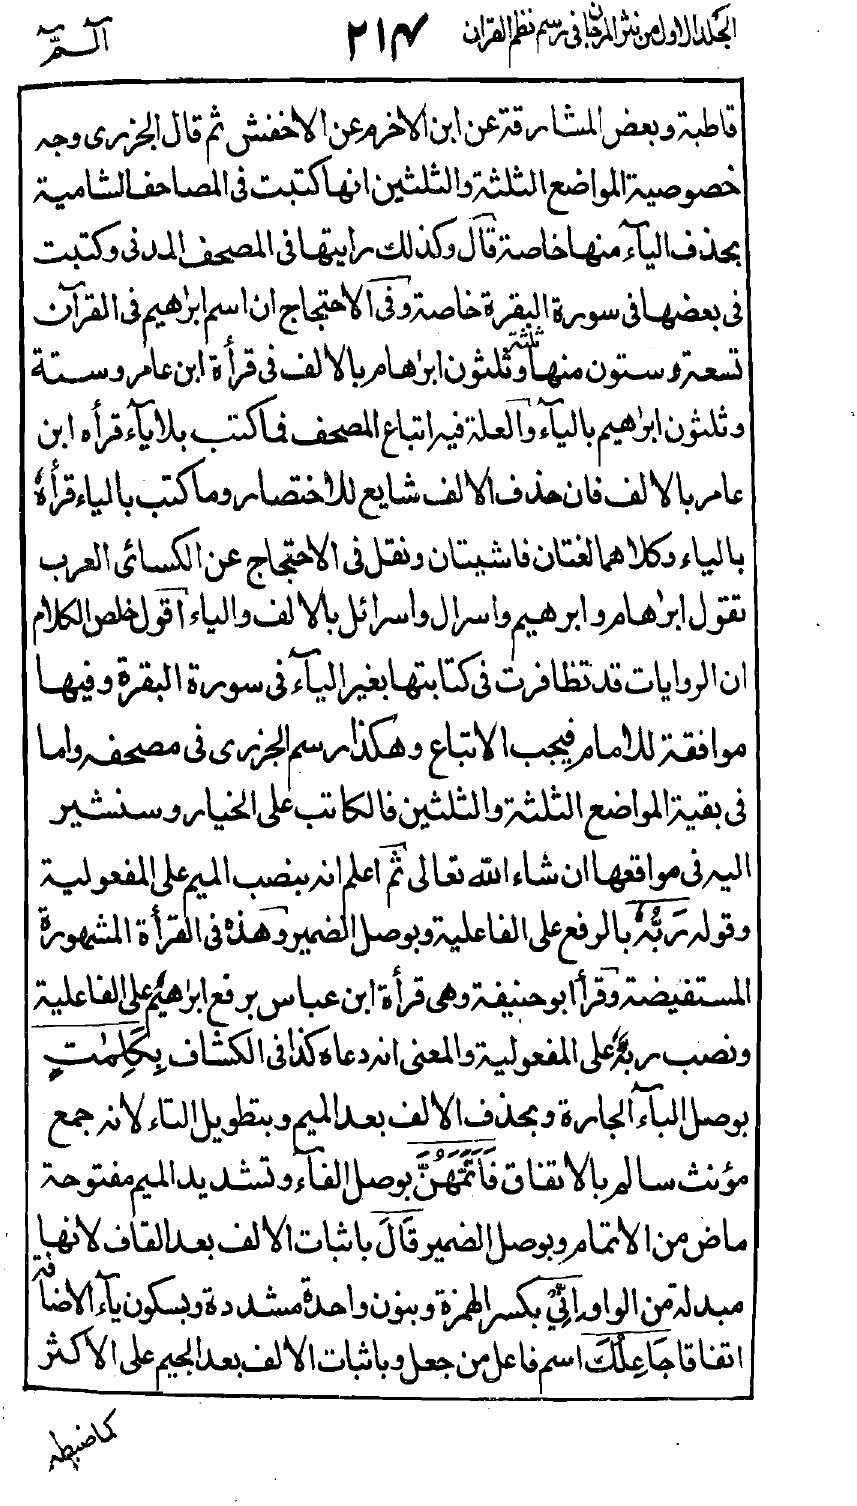 الجلد الاول من نثر المرجان فی رسم نظم القران ۲۱۴ الٓـمّٓ
قاطبة وبعض المشارقة عن ابن الاخرم عن الاخفش ثم قال الجزری وجه
خصوصية المواضع الثلثة والثلثين انها كتبت فی المصاحف الشامية
بحذف اليآء منها خاصة قال وكذلك رايتها فی المصحف المدنی وكتبت
فی بعضها فی سورة البقرة خاصة وفی الاحتجاج ان اسم ابرٰهيم فی القرآن
تسعة وستون منها ثلثة وثلثون ابرٰهام بالالف فی قرأة ابن عامر وستة
وثلثون ابرٰهيم باليآء والعلة فيه اتباع المصحف فما كتب بلا يآء قرأه ابن
عامر بالالف فان حذف الالف شايع للاختصار وما كتب بالياء قرأهٗ
بالياء وكلاهما لغتان فاشيتان ونقل فی الاحتجاج عن الكسائی العرب
تقول ابرٰهام وابرهيم واسرال واسرائل بالالف والياء اقول خلص الكلام
ان الروايات قد تظافرت فی كتابتها بغير اليآء فی سورة البقرة وفيها
موافقة للامام فيجب الاتباع وهكذا رسم الجزری فی مصحفه واما
فی بقية المواضع الثلثة والثلثين فالكاتب علی الخيار وسنشير
اليه فی مواقعها ان شاء الله تعالی ثم اعلم انه بنصب الميم علی المفعولية
وقوله رَبُّهٗ بالرفع علی الفاعلية وبوصل الضمير وهذه فی القرأة المشهورة
المستفيضة وقرأ ابو حنيفة وهی قرأة ابن عباس برفع ابرٰهيمُ علی الفاعلية
ونصب ربَّهٗ علی المفعولية والمعنی انه دعاه كذا فی الكشاف بِكَلِمٰتٍ
بوصل البآء الجارة وبحذف الالف بعد الميم وبتطويل التاء لانه جمع
مؤنث سالم بالاتفاق فَاَتَمَّهُنَّ بوصل الفآء وتشديد الميم مفتوحة
ماض من الاتمام وبوصل الضمير قَالَ باثبات الالف بعد القاف لانها
مبدلة من الواو اِنِّیْ بكسر الهمزة وبنون واحدة مشددة وبسكون يآء الاضافة
اتفاقا جَاعِلُكَ اسم فاعل من جعل وباثبات الالف بعد الجيم علی الاكثر
كما ضبطه